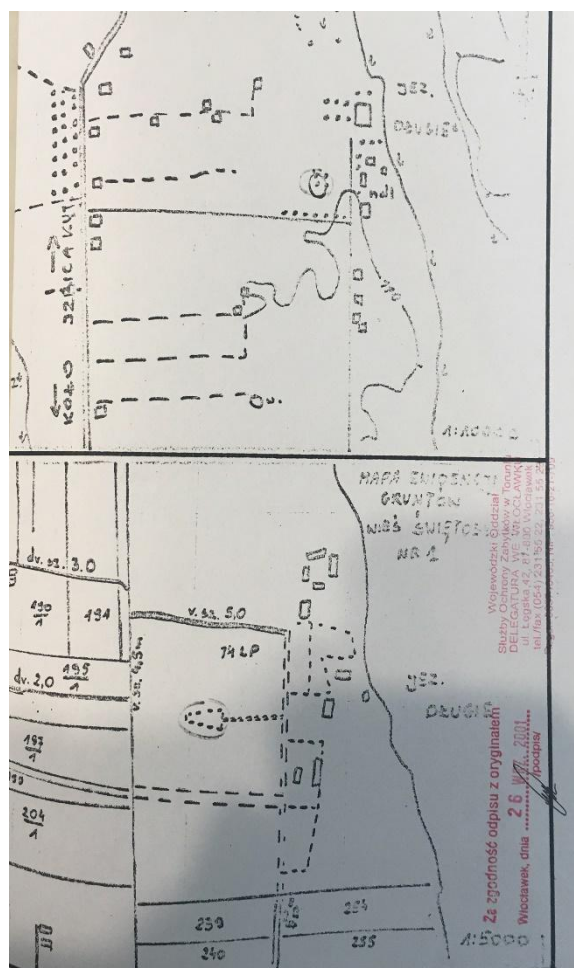 JEZ.
DŁUGIE
IZBICA KUJ.
KOŁO
130
MAPA EWIDENCJI
GRUNTÓW
WIEŚ
NR 1
dr. sz. 3.0
190
1
191
dv. 2,0
195
1
197
1
204
1
74 LP
JEZ.
DŁUGIE
239
240
254
255
1:5000
Wojewódzki Oddział
Służby Ochrony Zabytków w Toruniu
DELEGATURA WE WŁOCŁAWKU
ul. Łęgska 42, 87-800 Włocławek
Za zgodność odpisu z oryginałem
Włocławek, dnia 26 2001
/podpis/